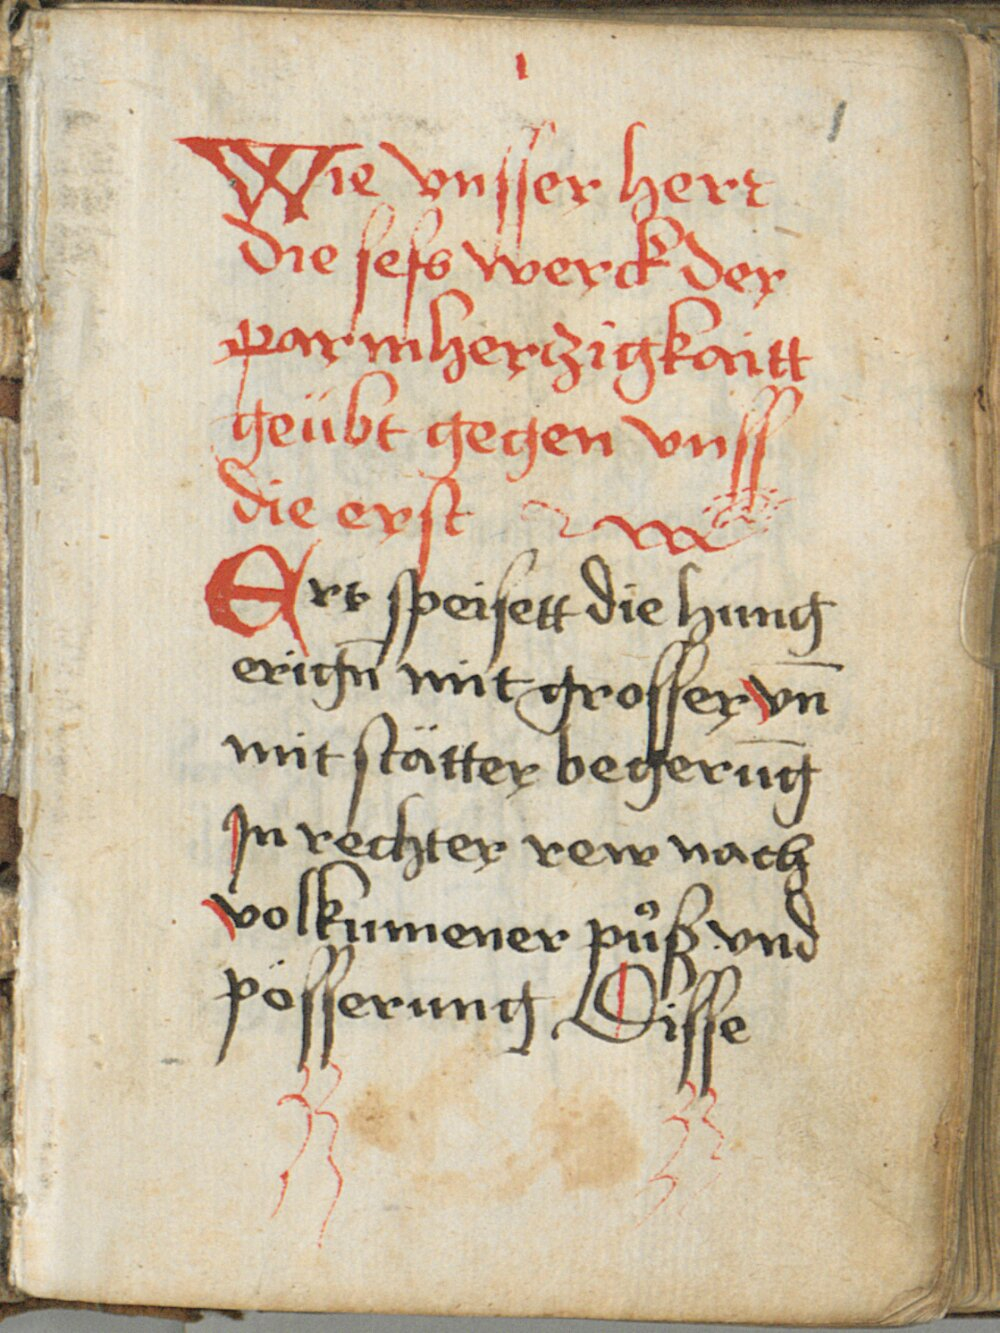 1
1
Wie vnsser herr
die sehs werck der
parmhertzigkaitt
geübt gegen vnss
die erst
Err speisett die hung
erigñ mit grosser vn̄
mit stätter begerūg
In rechter rew nach
volkumener půß vnd
pösserung Disse